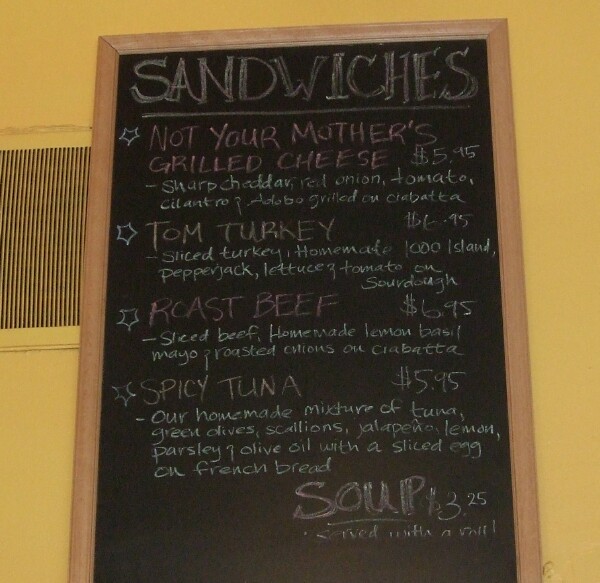 SANDWICHES
NOT YOUR MOTHER'S
GRILLED CHEESE $5.95
- Sharp cheddar, red onion, tomato,
cilantro & Adobo grilled on ciabatta
TOM TURKEY $6.95
- Sliced turkey, Homemade 1000 Island,
pepperjack, lettuce & tomato on
Sourdough
ROAST BEEF $6.95
- Sliced beef, Homemade lemon basil
mayo & roasted onions on ciabatta
SPICY TUNA $5.95
- Our homemade mixture of tuna,
green olives, scallions, jalapeño, lemon,
parsley & olive oil with a sliced egg
on french bread
SOUP $3.25
· Served with a roll!